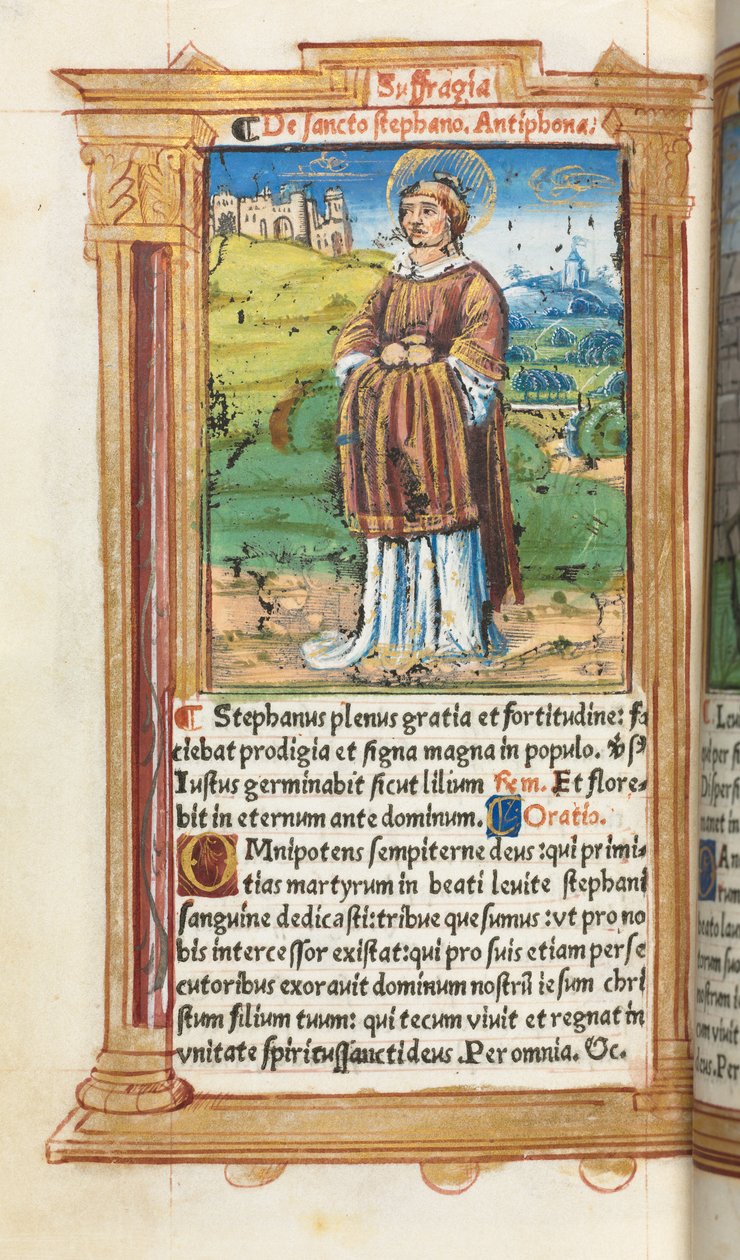 Suffragia
¶ De sancto stephano. Antiphona:
¶ Stephanus plenus gratia et fortitudine: fa
ciebat prodigia et signa magna in populo.
Iustus germinabit sicut lilium Rem. Et flore-
bit in eternum ante dominum. Oratio.
OMnipotens sempiterne deus :qui primi-
tias martyrum in beati leuite stephani
sanguine dedicasti:tribue quesumus :vt pro no
bis intercessor existat:qui pro suis etiam perse
cutoribus exorauit dominum nostrū iesum chri
stum filium tuum: qui tecum viuit et regnat in
vnitate spiritussancti deus .Per omnia. &c.